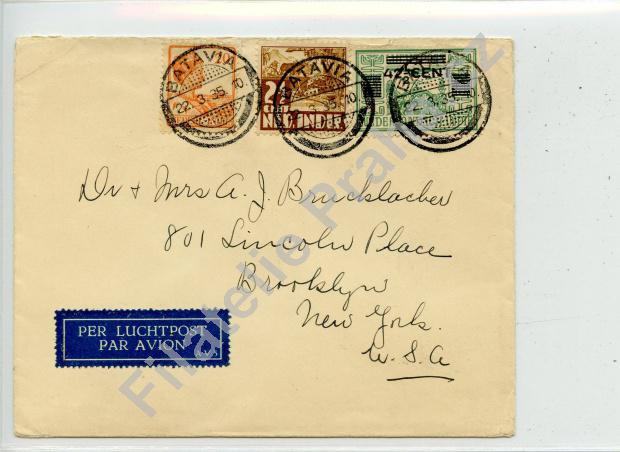 BATAVIA
22.3.35.10
BATAVIA
3.35.10
2½
NED. INDIË
42½ CEN
Dr & Mrs A. J. Brucklacher
801 Lincoln Place
Brooklyn
New York.
U.S.A
PER LUCHTPOST
PAR AVION
Filatelie Prah